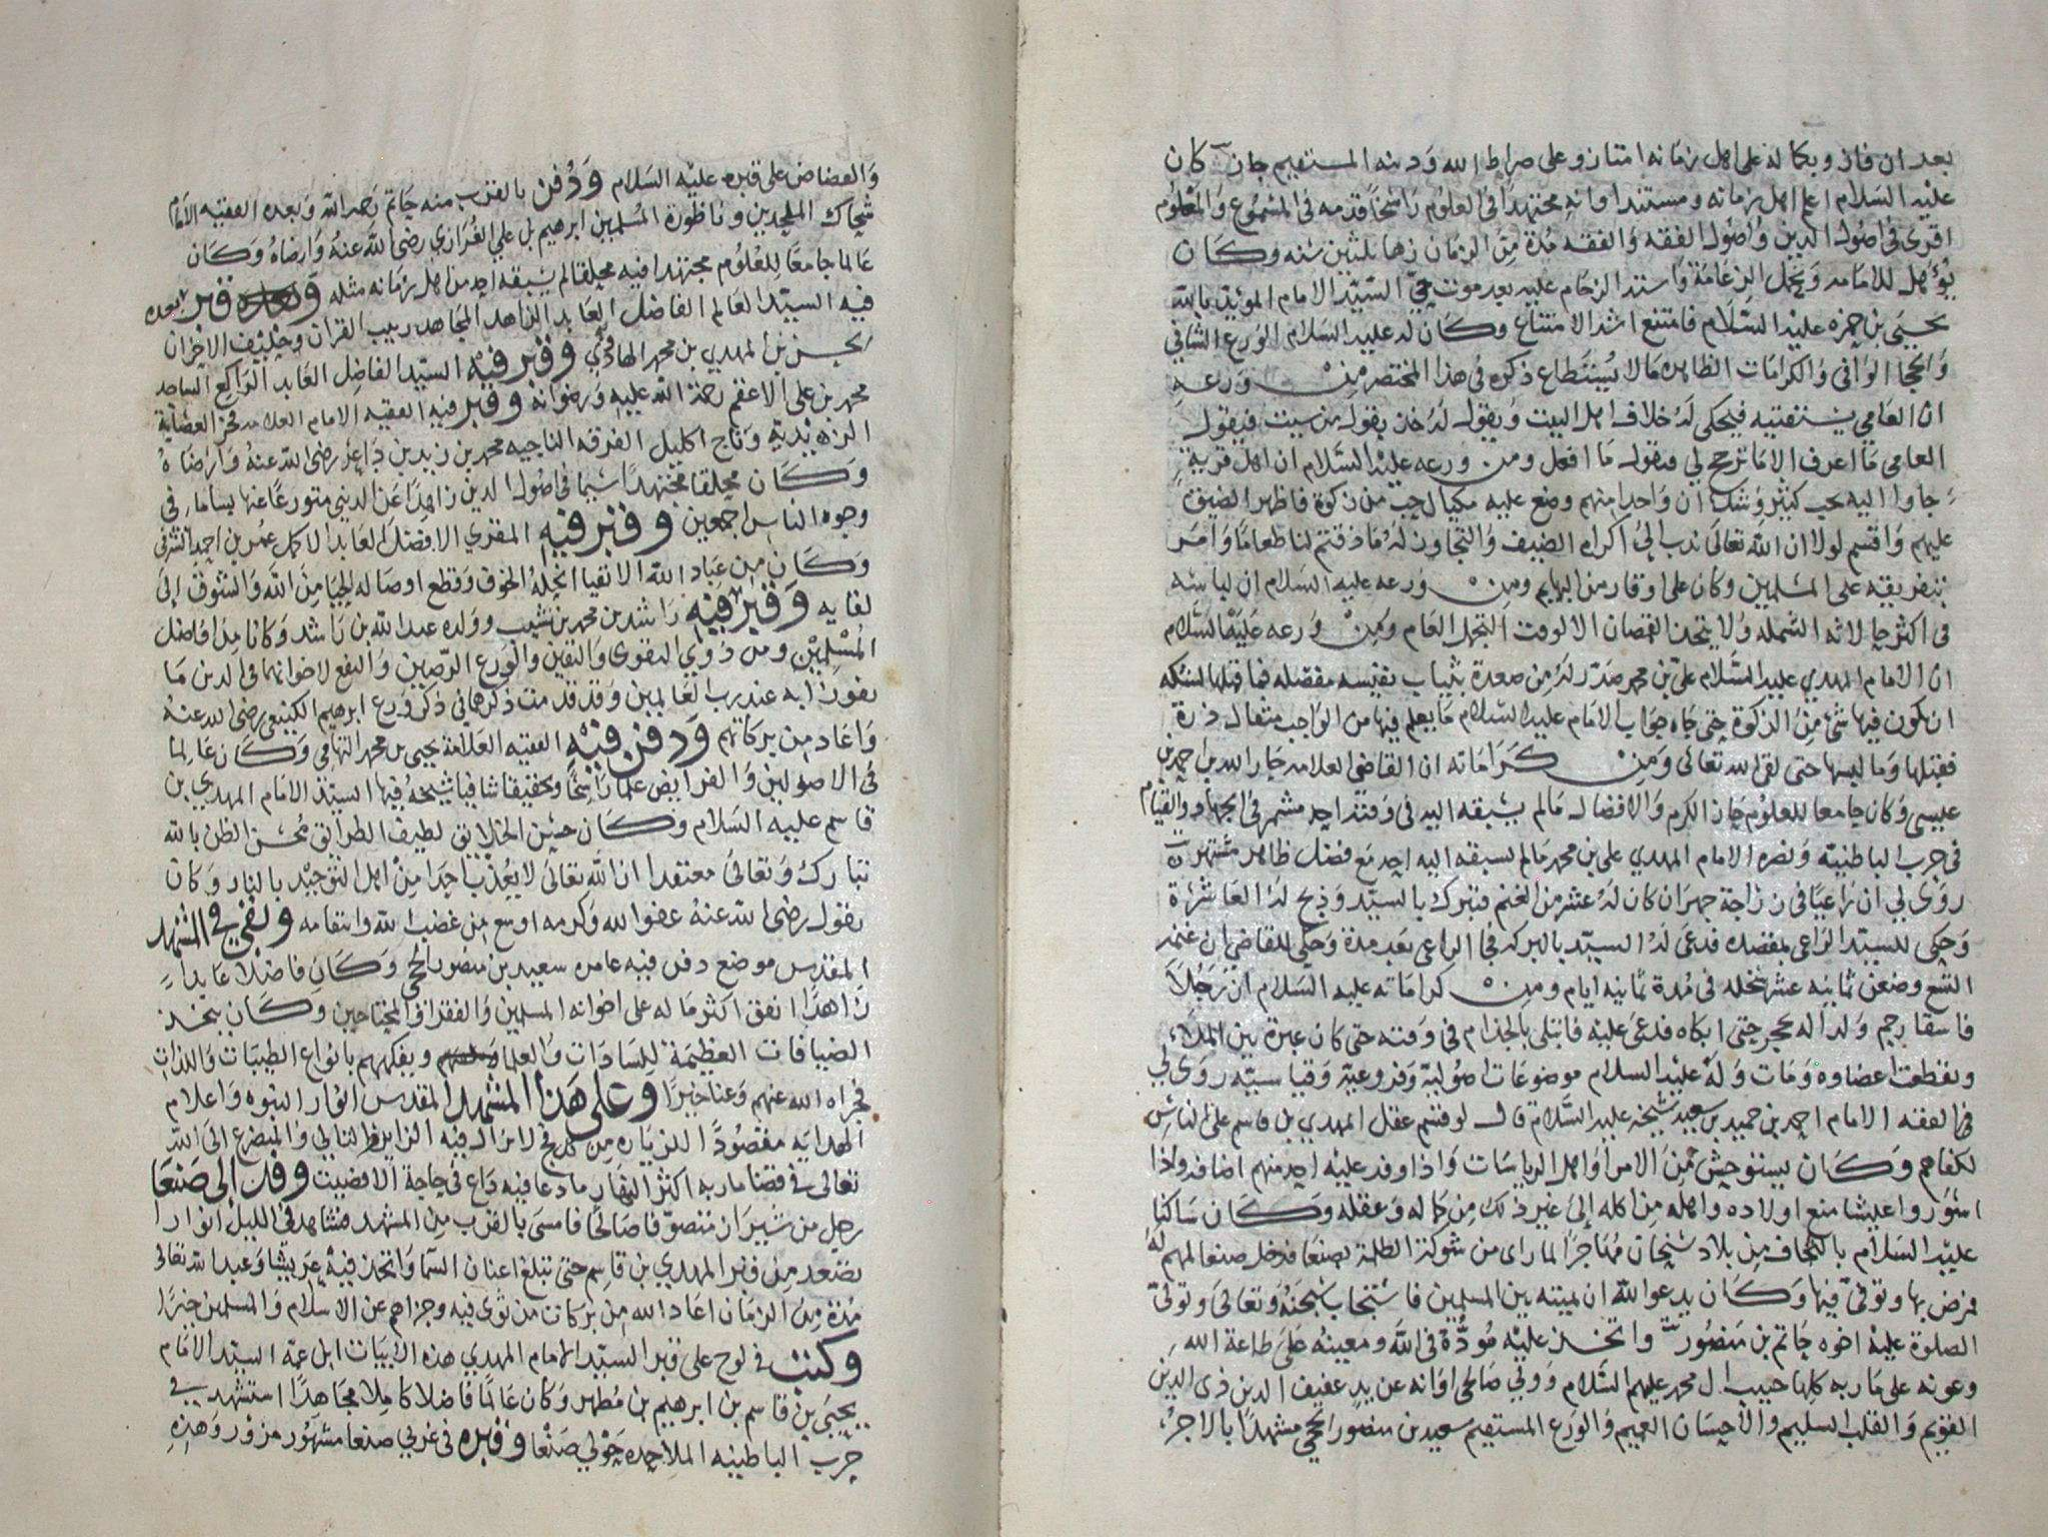 بعد ان فاز وبكماله على اهل زمانه امتاز وعلى صراط الله ودينه المستقيم جاز كان
عليه السلام اعلم اهل زمانه ومستند اوانه مجتهدا في العلوم راسخا قدمه في المسموع والمعلوم
اقرى في اصول الدين واصول الفقه والفقه مدة من الزمان زها ثلثين سنه وكان
يؤهل للامامه وتحمل الزعامة واشتد الزحام عليه بعد موت حي السيد الامام المويد بالله
يحيى بن حمزه عليه السلام فامتنع اشد الامتناع وكان له عليه السلام الورع الشافي
والحجا الوافي والكرامات الظاهره مالا يستطاع ذكره في هذا المختصر من ورعه
ان العامي يستفتيه فيحكي له خلاف اهل البيت ويقول له خذ بقول من شيت فيقول
العامي ما اعرف الا ما ترجح لي فيقول ما افعل ومن ورعه عليه السلام ان اهل قرية
جاوا اليه بحب كثير وشك ان واحدا منهم وضع عليه مكيال حب من زكوة فاظهر الضيق
عليهم واقسم لولا ان الله تعالى ندب الى اكرام الضيف والتجاوز له ما ذقتم لنا طعاما وامر
بتفريقه على المسلمين وكان على اوقار من البهايم ومن ورعه عليه السلام ان لباسه
في اكثر حالاته الشمله ولا يتخذ القمصان الا لوقت التجمل العام ومن ورعه عليه السلام
ان الامام المهدي عليه السلام علي بن محمد صدر له من صعدة بثياب نفيسه مفصله فما قبلها لشكه
ان يكون فيها شئ من الزكوة حتى جاه جواب الامام عليه السلام ما يعلم فيها من الواجب مثقال ذرة
فقبلها وما لبسها حتى لقي الله تعالى ومن كراماته ان القاضي العلامه جار الله بن احمد بن
عيسى وكان جامعا للعلوم حاز الكرم والافضال مالم يسبقه اليه في وقته احد مشمر في الجهاد والقيام
في حرب الباطنية ونصره الامام المهدي علي بن محمد مالم يسبقه اليه احد مع فضل ظاهر مشتهر
روى لي ان راعيا في زراجة جهران كان له عشر من الغنم فتبرك بالسيد وذبح له العاشرة
وحكى للسيد الراعي بمقصده فدعى له السيد بالبركه فجا الراعي بعد مدة وحكى للقاضي ان غنمه
التسع وضعن ثمانيه عشر سخله في مدة ثمانيه ايام ومن كراماته عليه السلام ان رجلا
فاسقا رجم ولدا له بحجر حتى ابكاه فدعى عليه فابتلى بالجذام في وقته حتى كان عبرة بين الملاء
وتقطعت اعضاوه ومات وله عليه السلام موضوعات اصولية وفروعية وقياسيه روى لي
الفقيه الامام احمد بن حميد بن سعيد شيخه عليه السلام قال لو قسم عقل المهدي بن قاسم على الناس
لكفاهم وكان يستوحش من الامرا واهل الرياسات واذا وفد عليه احد منهم اضافه واذا
منع اولاده واهله من اكله الى غير ذلك من كماله وعقله وكان ساكنا
عليه السلام من بلاد سنحان مهاجرا لما راى من شوكة الظلمة بصنعا فدخل صنعا لمهم له
فمرض بها وتوفي فيها وكان يدعو الله ان يميته بين المسلمين فاستجاب سبحنه وتعالى وتولى
الصلوة عليه اخوه حاتم بن منصور واتخذ عليه موده في الله ومعينه على طاعة الله
وعونه على ماربه كلها حبيب ال محمد عليهم السلام وولي صالحي اوانه عن يد عفيف الدين ذي الدين
القويم والقلب السليم والاحسان العميم والورع المستقيم سعيد بن منصور الحجي مشهدا بالاجر
والعضاض على قبره عليه السلام ودفن بالقرب منه حاتم رحمه الله وبعده الفقيه الامام
شحاك الملحدين وناظورة المسلمين ابرهيم بن علي العراري رضى الله عنه وارضاه وكان
عالما جامعا للعلوم مجتهدا فيه محلقا لم يسبقه احد من اهل زمانه مثله وقبر بعده
فيه السيد العالم الفاضل العابد الزاهد المجاهد ربيب القران وحليف الاحزان
الحسن بن المهدي بن محمد الهادوي وقبر فيه السيد الفاضل العابد الراكع الساجد
محمد بن علي الاعقم رحمة الله عليه ورضوانه وقبر فيه الفقيه الامام العلامه فخر العصابة
الزيدية وتاج اكليل الفرقه الناجيه محمد بن زيد بن داعر رضى الله عنه وارضاه
وكان محلقا مجتهدا سيما في اصول الدين زاهدا عن الدنيا متورعا عنها بساما في
وجوه الناس اجمعين وقبر فيه المقري الافضل العابد الاكمل عمر بن احمد الشرفي
وكان من عباد الله الاتقيا انحله الخوف وقطع اوصاله الحيا من الله والشوق الى
لقايه وقبر فيه راشد بن محمد بن نشيب وولده عبد الله بن راشد وكانا من افاضل
المسلمين ومن ذوي التقوى واليقين والورع الرصين والنفع لاخوانهما في الدين ما
يفوزا به عند رب العالمين وقد قدمت ذكرهما في ذكر ورع ابرهيم الكينعي رضى الله عنه
واعاد من بركاتهم ودفن فيه الفقيه العلامة يحيى بن محمد التهامي وكان عالما
في الاصولين والفرايض علما راسخا وتحقيقا شافيا شيخه فيها السيد الامام المهدي بن
قاسم عليه السلام وكان حسن الخلايق لطيف الطرايق محسن الظن بالله
تبارك وتعالى معتقدا ان الله تعالى لا يعذب احدا من اهل التوحيد بالنار وكان
يقول رضى الله عنه عفو الله وكرمه اوسع من غضب الله وانتقامه وبقي في المشهد
المقدس موضع دفن فيه عامره سعيد بن منصور الحجي وكان فاضلا عابدا
زاهدا انفق اكثر ماله على اخوانه المسلمين والفقرا والمحتاجين وكان يتخذ
الضيافات العظيمة للسادات والعلما ويفكههم بانواع الطيبات واللذات
فجزاه الله عنهم وعنا خيرا وعلى هذا المشهد المقدس انوار النبوه واعلام
الهدايه مقصودا للزياره من كل فج لا يزال فيه الزاير والتالي والمتضرع الى الله
تعالى في قضا ماربه اكثر النهار ما دعا فيه داع في حاجة الا قضيت وفد الى صنعا
رجل من شيراز متصوفا صالحا فامسى بالقرب من المشهد فشاهد في الليل انوارا
تصعد من قبر المهدي بن قاسم حتى تبلغ اعنان السما واتخذ فيه عريشا وعبد الله تعالى
مدة من الزمان اعاد الله من بركات من ثوى فيه وجزاهم عن الاسلام والمسلمين خيرا
وكتب في لوح على قبر السيد الامام المهدي هذه الابيات ابن عمه السيد الامام
يحيى بن قاسم بن ابرهيم بن مطهر وكان عالما فاضلا كاملا مجاهدا استشهد في
حرب الباطنيه الملاحده حولي صنعا وقبره في غربي صنعا مشهور مزور وهذه